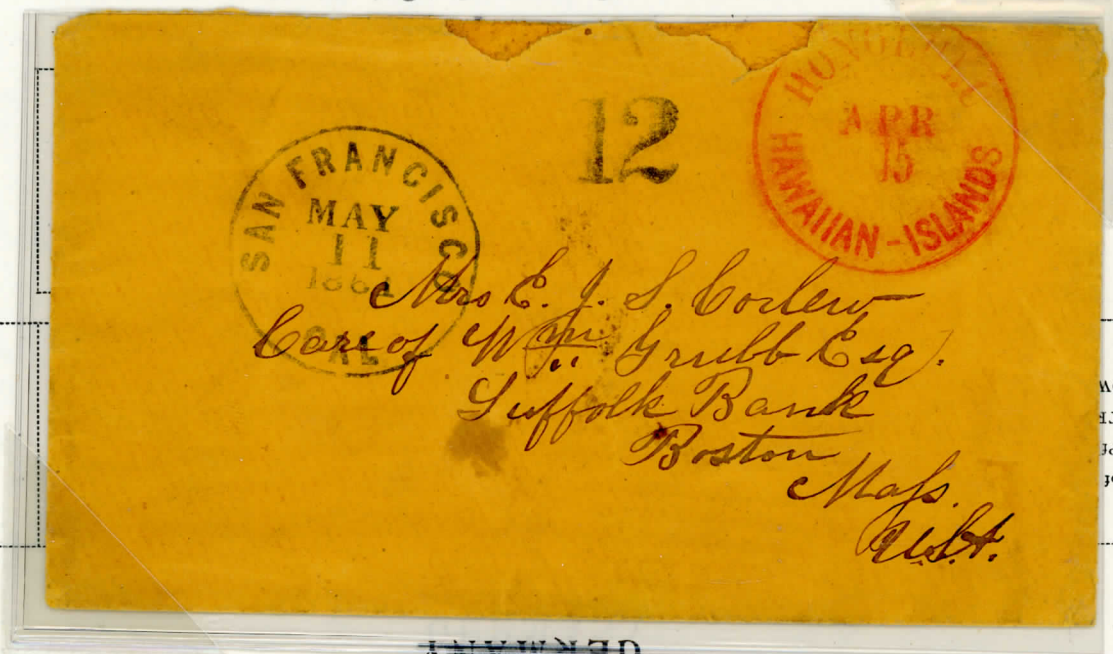 HONOLULU
APR
15
HAWAIIAN-ISLANDS
12
SAN FRANCISCO
MAY
11
1864
CAL
Mrs E. J. S. Corlew
Care of Wm Grubb Esq.
Suffolk Bank
Boston
Mass.
U.S.A.
GERMANY